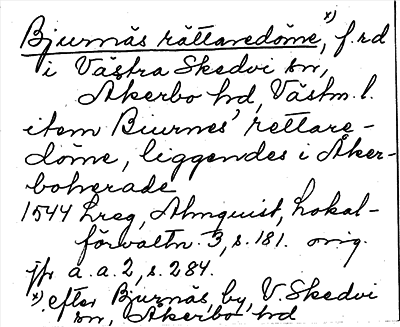 Bjurnäs rättaredöme,x) f.rd
i Västra Skedvi sn,
Åkerbo hd, Västm. l.
item Biurnes' rettare-
döme, liggendes i Åker-
boherade
1544 Lreg, Almquist, Lokal-
förvaltn. 3, s. 181. orig.
jfr a.a. 2, s. 284.
x) efter Bjurnäs, by, V. Skedvi
sn, Åkerbo hd